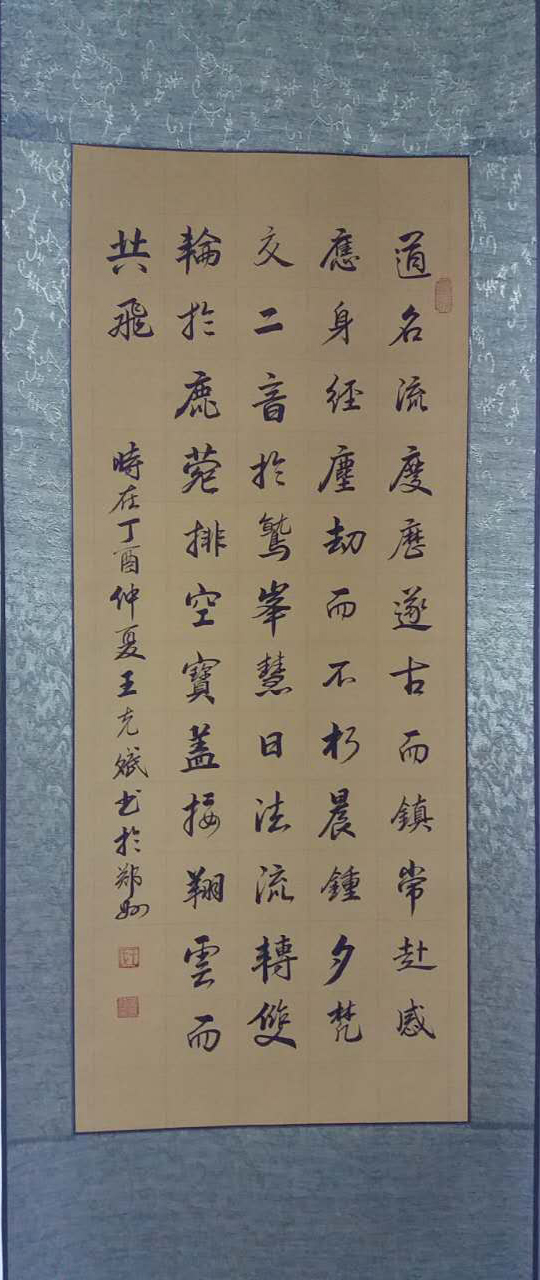 道名流慶歷遂古而鎮常赴感
應身經塵劫而不朽晨鍾夕梵
交二音於鷲峯慧日法流轉雙
輪於鹿菀排空寶蓋接翔雲而
共飛
時在丁酉仲夏王克斌书於郑州